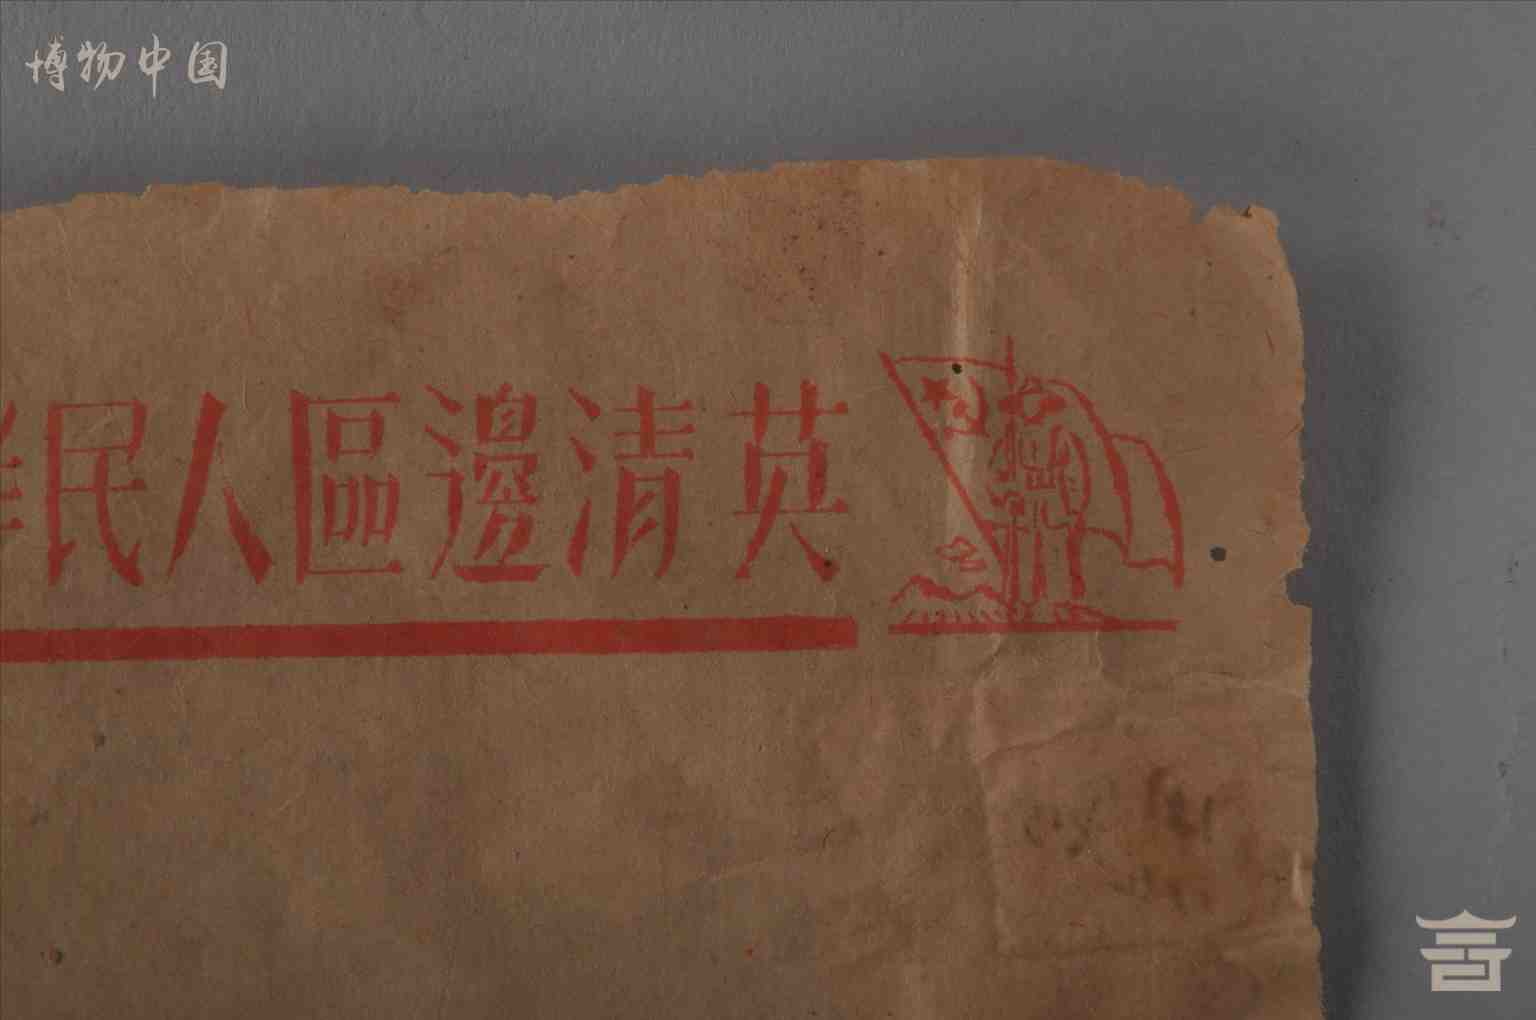 博物中国
英清邊區人民